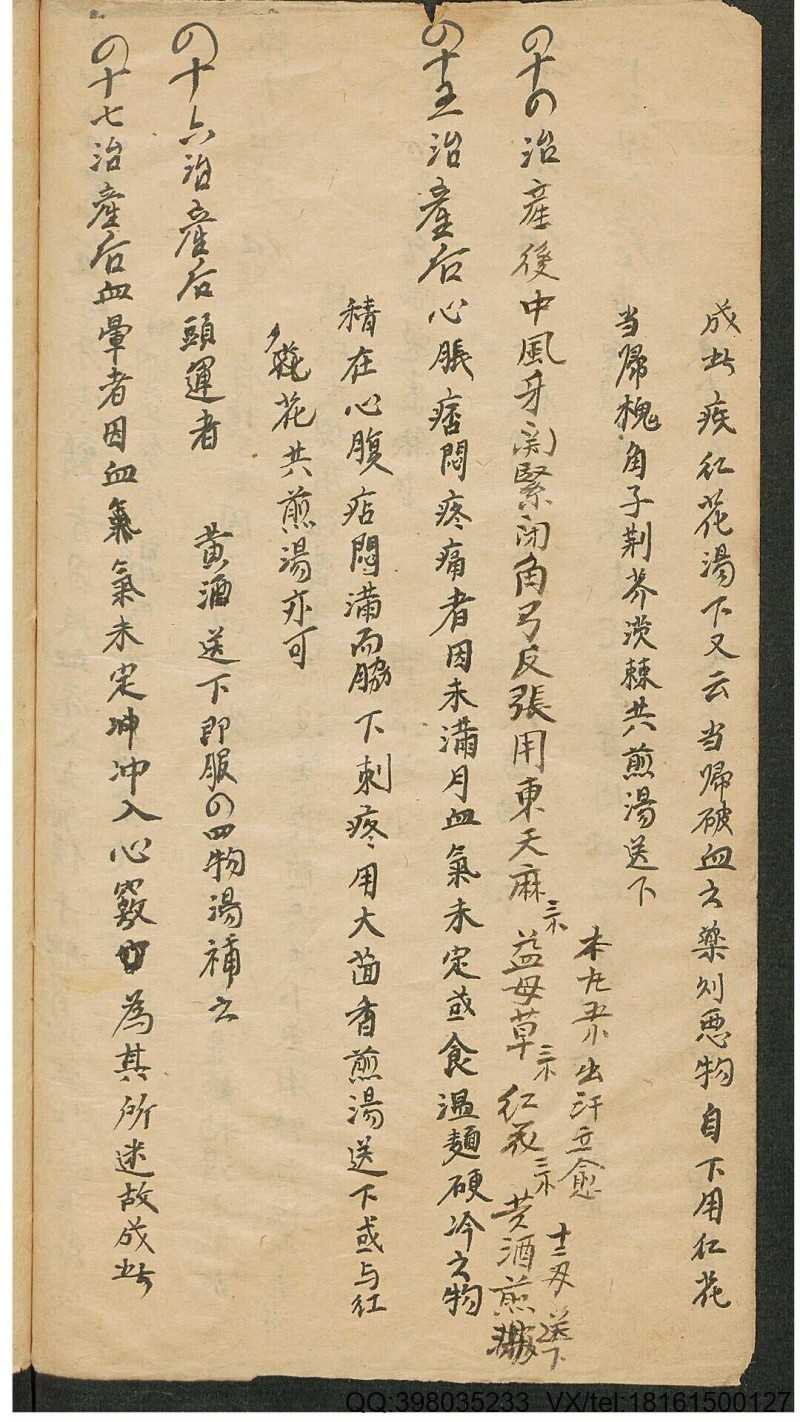 成此疾红花湯下又云当歸破血之藥则悪物自下用红花
当歸槐角子荆芥茨棘共煎湯送下
の十の治産後中風牙関緊闭角弓反張用東天麻三 益母草三 红花三 黄酒煎
本九 出汗立愈
送下
の十五治產后心脹痞悶疼痛者因未滿月血氣未定或食温麵硬冷之物
積在心腹痁悶满而脇下刺疼用大茴香煎湯送下或与红
花共煎湯亦可
の十六治産后頭運者 黄酒送下即服の四物湯補之
の十七治產后血暈者因血氣氣未定冲冲入心竅 為其所迷故成此
QQ:398035233 VX/tel:18161500127